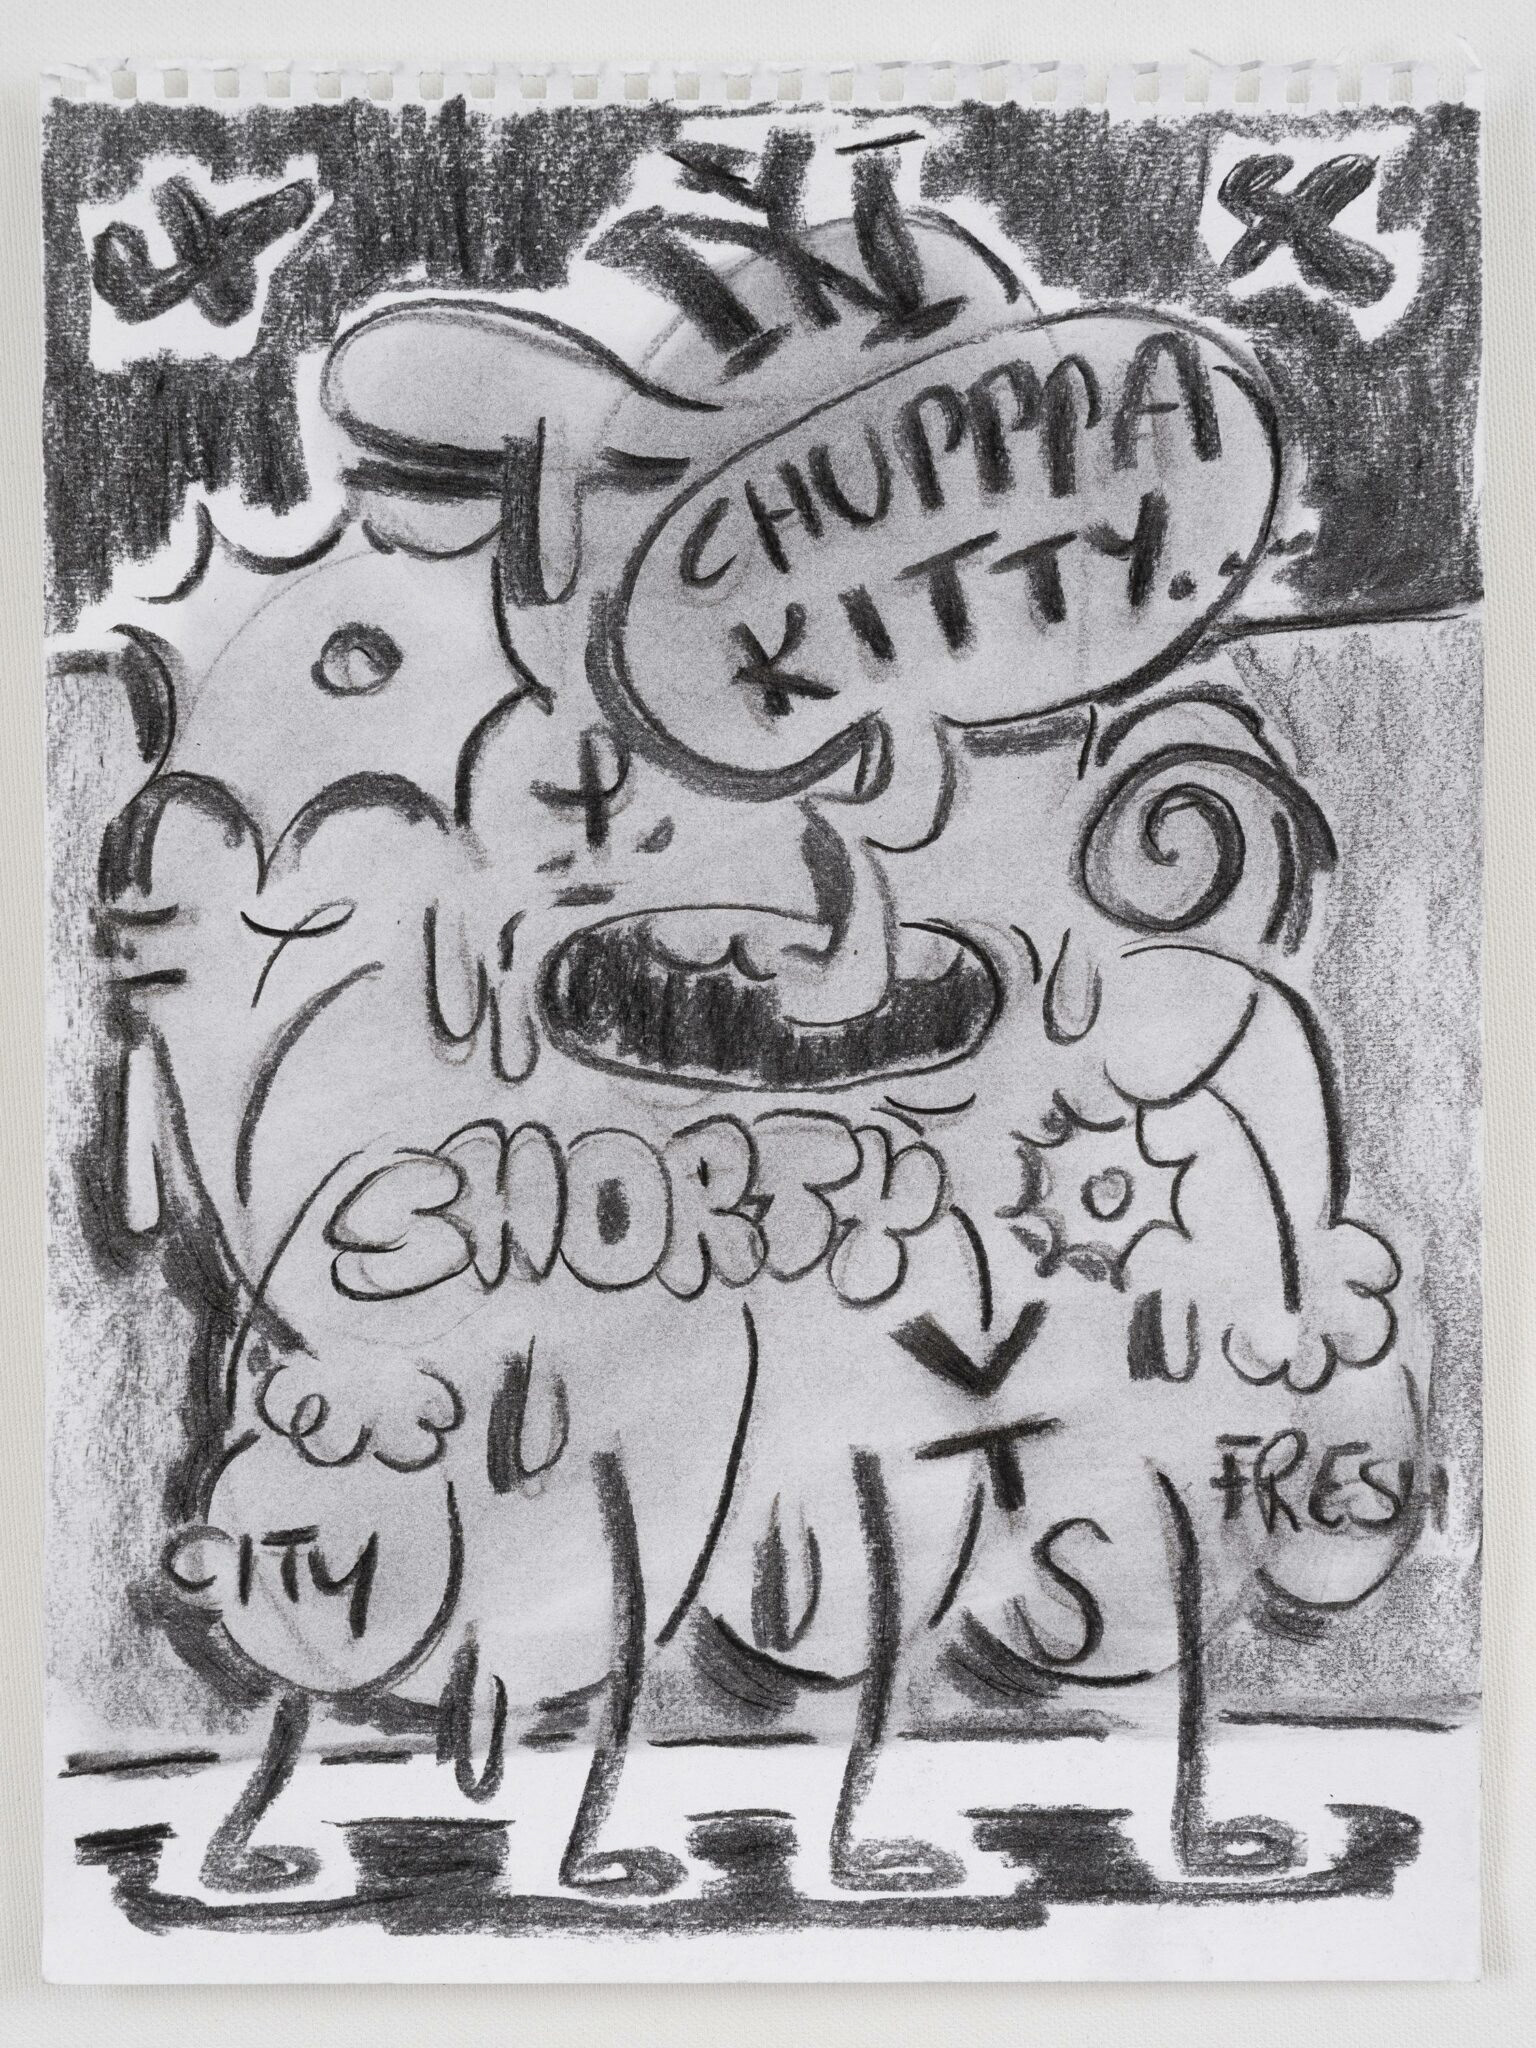 CHUPPPA
KITTY.
SHORTY
T
S
FRESH
CITY